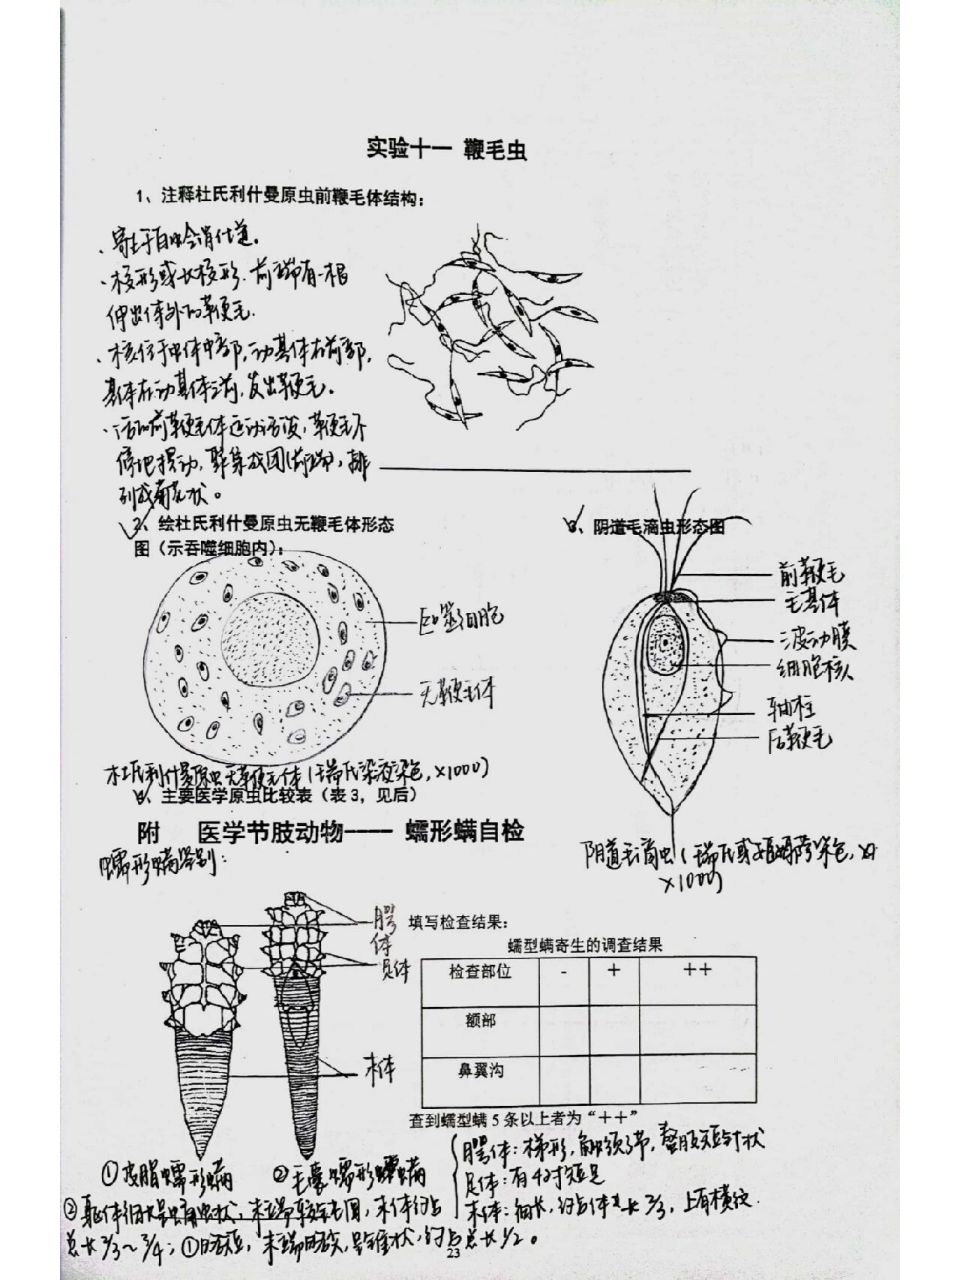 实验十一 鞭毛虫
1、注释杜氏利什曼原虫前鞭毛体结构：
、寄生于白蛉消化道。
、梭形或长梭形，前端有一根
伸出体外的鞭毛.
、核位于虫体中部，动基体在前部，
基体在动基体之前，发出鞭毛。
、活的前鞭毛体运动活泼，鞭毛不
停地摆动，聚集成团(前端)，排
列成菊花状。
2、绘杜氏利什曼原虫无鞭毛体形态
图（示吞噬细胞内）：
3、阴道毛滴虫形态图
前鞭毛
毛基体
波动膜
细胞核
轴柱
后鞭毛
巨噬细胞
无鞭毛体
杜氏利什曼原虫无鞭毛体(瑞氏染液染色，×1000)
4、主要医学原虫比较表（表3，见后）
阴道毛滴虫(瑞氏或姬姆萨染色，
×1000)
附 医学节肢动物---- 蠕形螨自检
蠕形螨鉴别：
颚体
足体
末体
填写检查结果：
蠕型螨寄生的调查结果
检查部位 - + ++
额部
鼻翼沟
查到蠕型螨5条以上者为“++”
①皮脂蠕形螨 ②毛囊蠕形螨
颚体：梯形，触须3节，螯肢短针状
足体：有4对短足
末体：细长，约占体长2/3，上有横纹.
②躯体细长呈蠕虫状，末端较钝圆，末体约占
总长2/3~3/4；①略短，末端略尖，呈锥状，约占总长1/2。
23